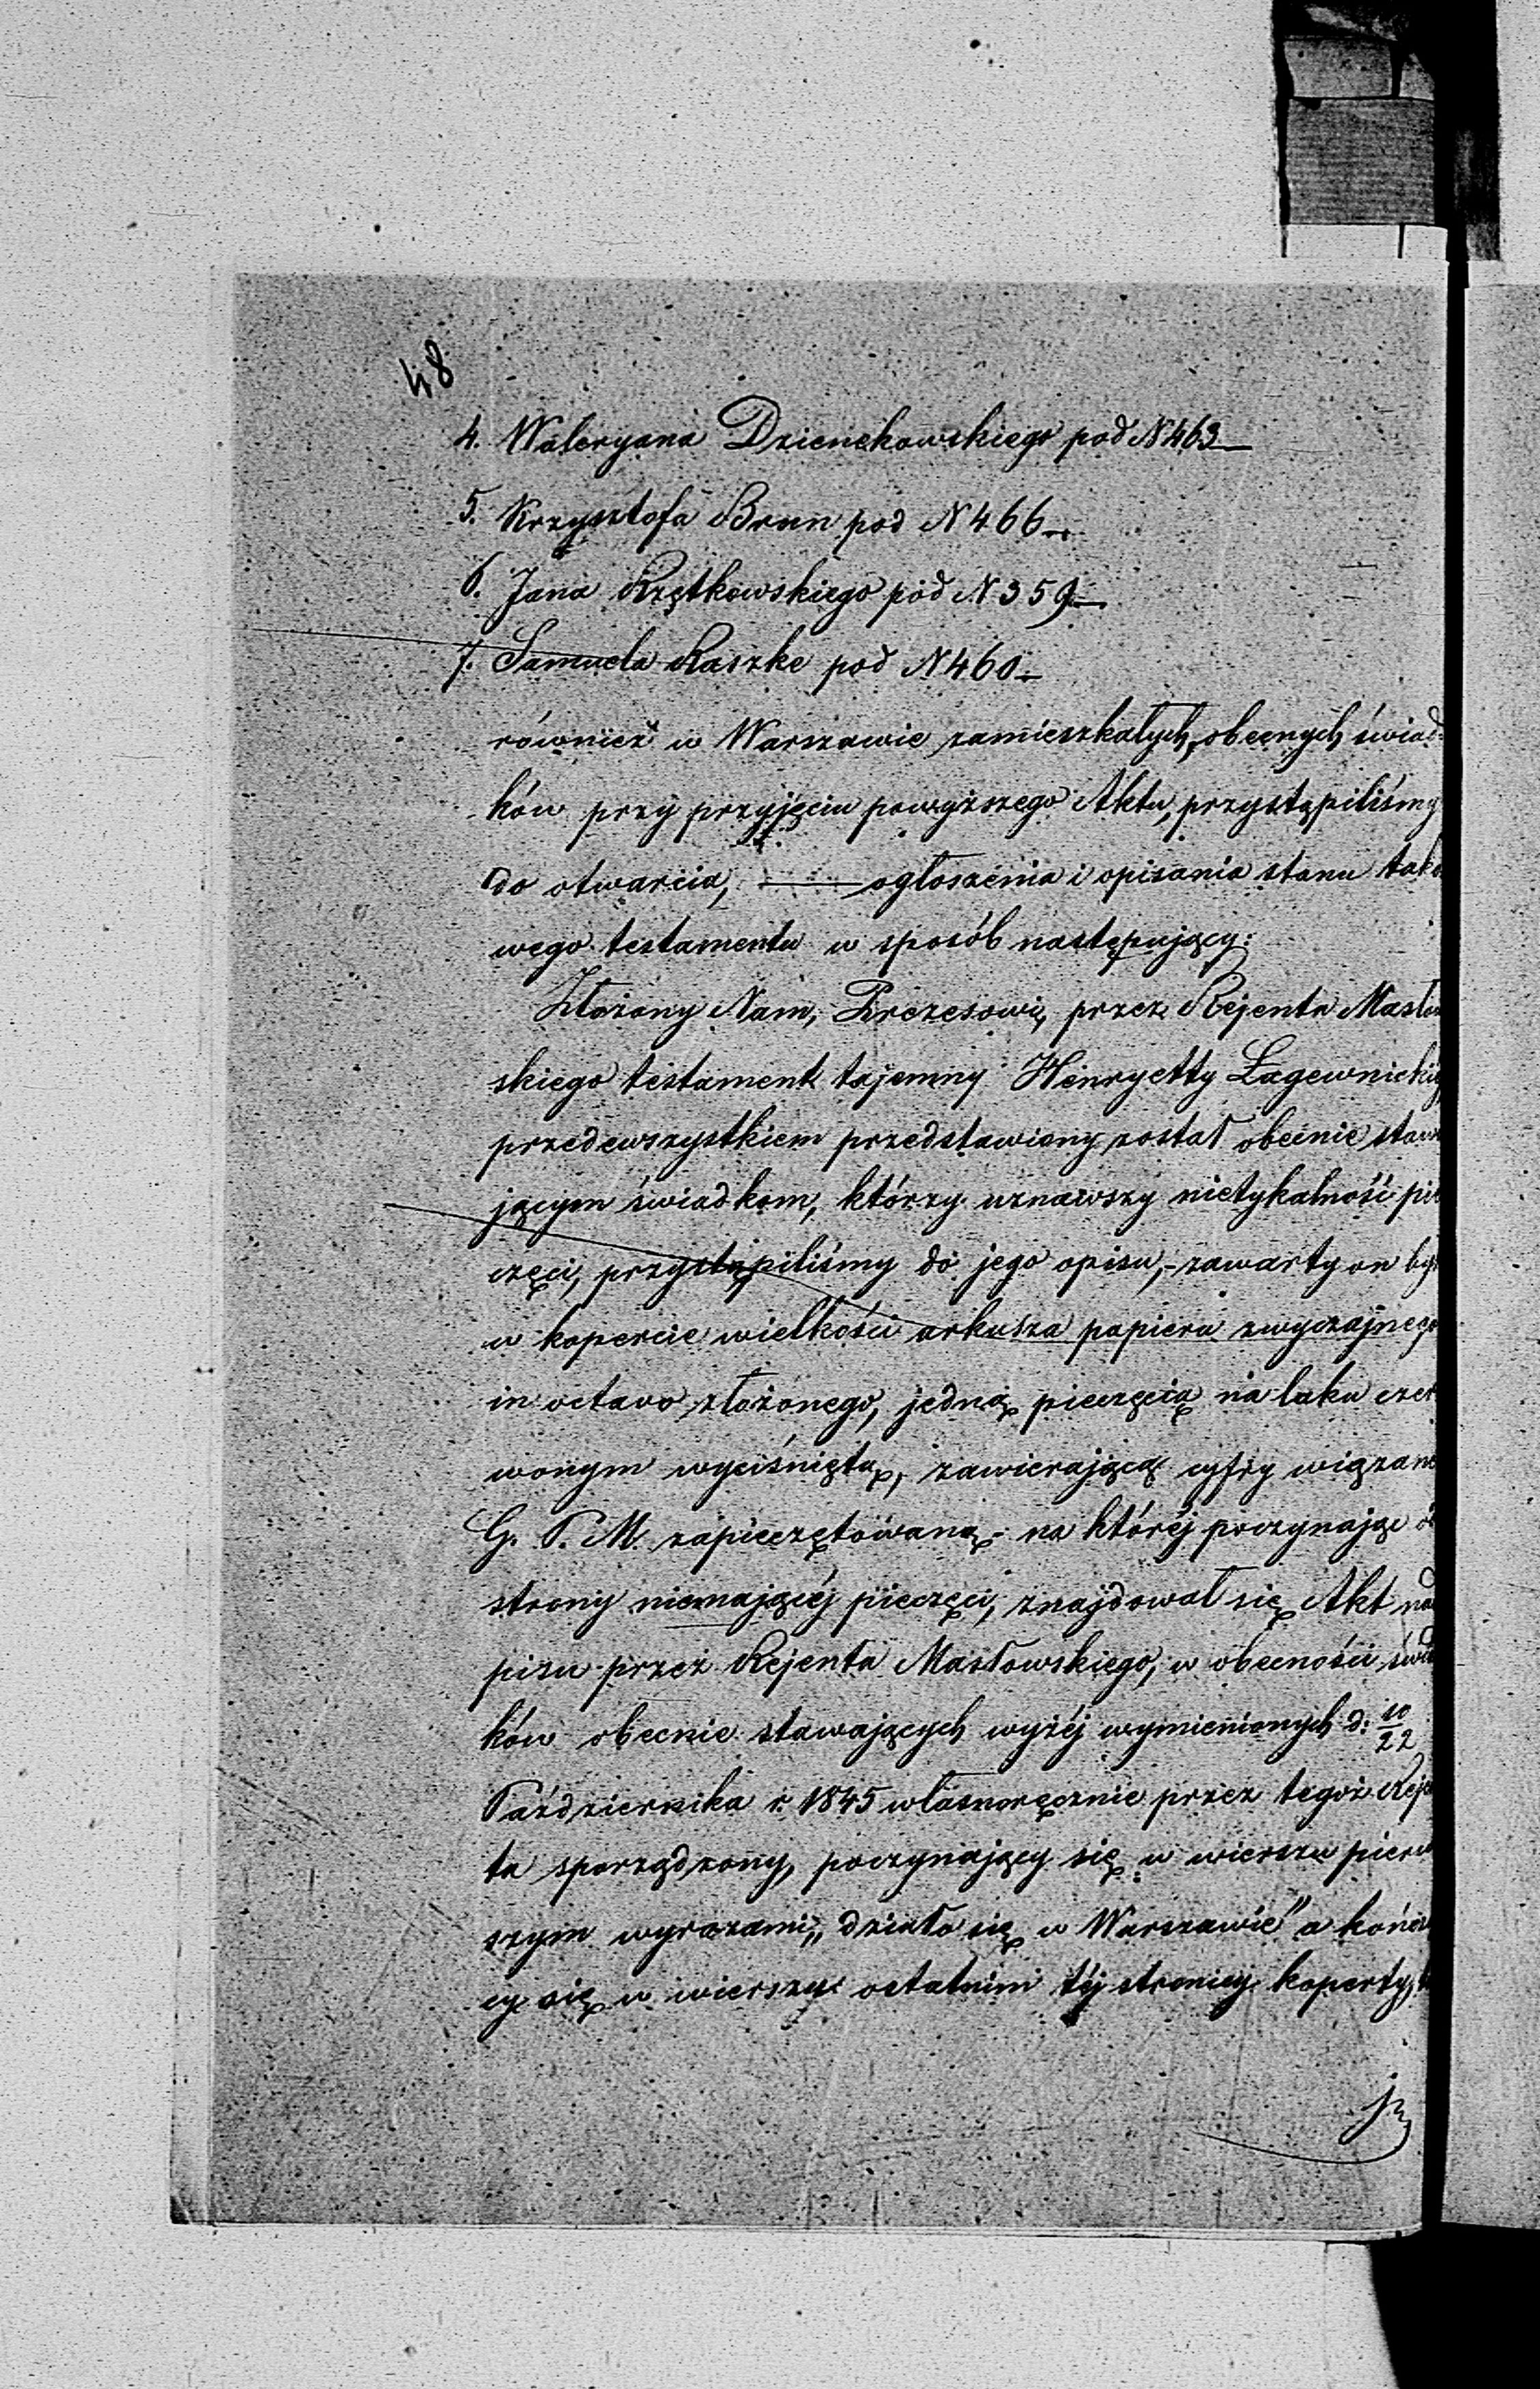 48
4. Waleryana Dzienckowskiego pod N 463
5. Krzysztofa Brun pod N 466
6. Jana Krzętkowskiego pod N 359
7. Samuela Raszke pod N 460
również w Warszawie zamieszkałych, obecnych świad-
ków przy przyjęciu powyższego Aktu, przystąpiliśmy
do otwarcia, — ogłoszenia i opisania stanu tako
wego testamentu w sposób następujący:
Złożony Nam, Prezesowi, przez Rejenta Masłow
skiego testament tajemny Henryetty Łagewnickiéj
przedewszystkiem przedstawiony został obecnie stawa
jącym świadkom, którzy uznawszy nietykalność pie
częci, przystąpiliśmy do jego opisu,- zawarty on był
w kopercie wielkości arkusza papieru zwyczajnego
in octavo złożonego, jedną pieczęcią na laku czer
wonym wyciśniętą, zawierającą cyfry wiązane
G. P. M. zapieczętowaną - na któréj poczynając od
strony niemającéj pieczęci, znajdował się Akt nad
pisu przez Rejenta Masłowskiego, w obecności świad
ków obecnie stawających wyżéj wymienionych d: 10/22
Października r. 1845 własnoręcznie przez tegoż Rejen
ta sporządzony, poczynający się w wierszu pierw
szym wyrazami „działo się w Warszawie" a kończą
cy się w wierszu ostatnim téj stronicy koperty,